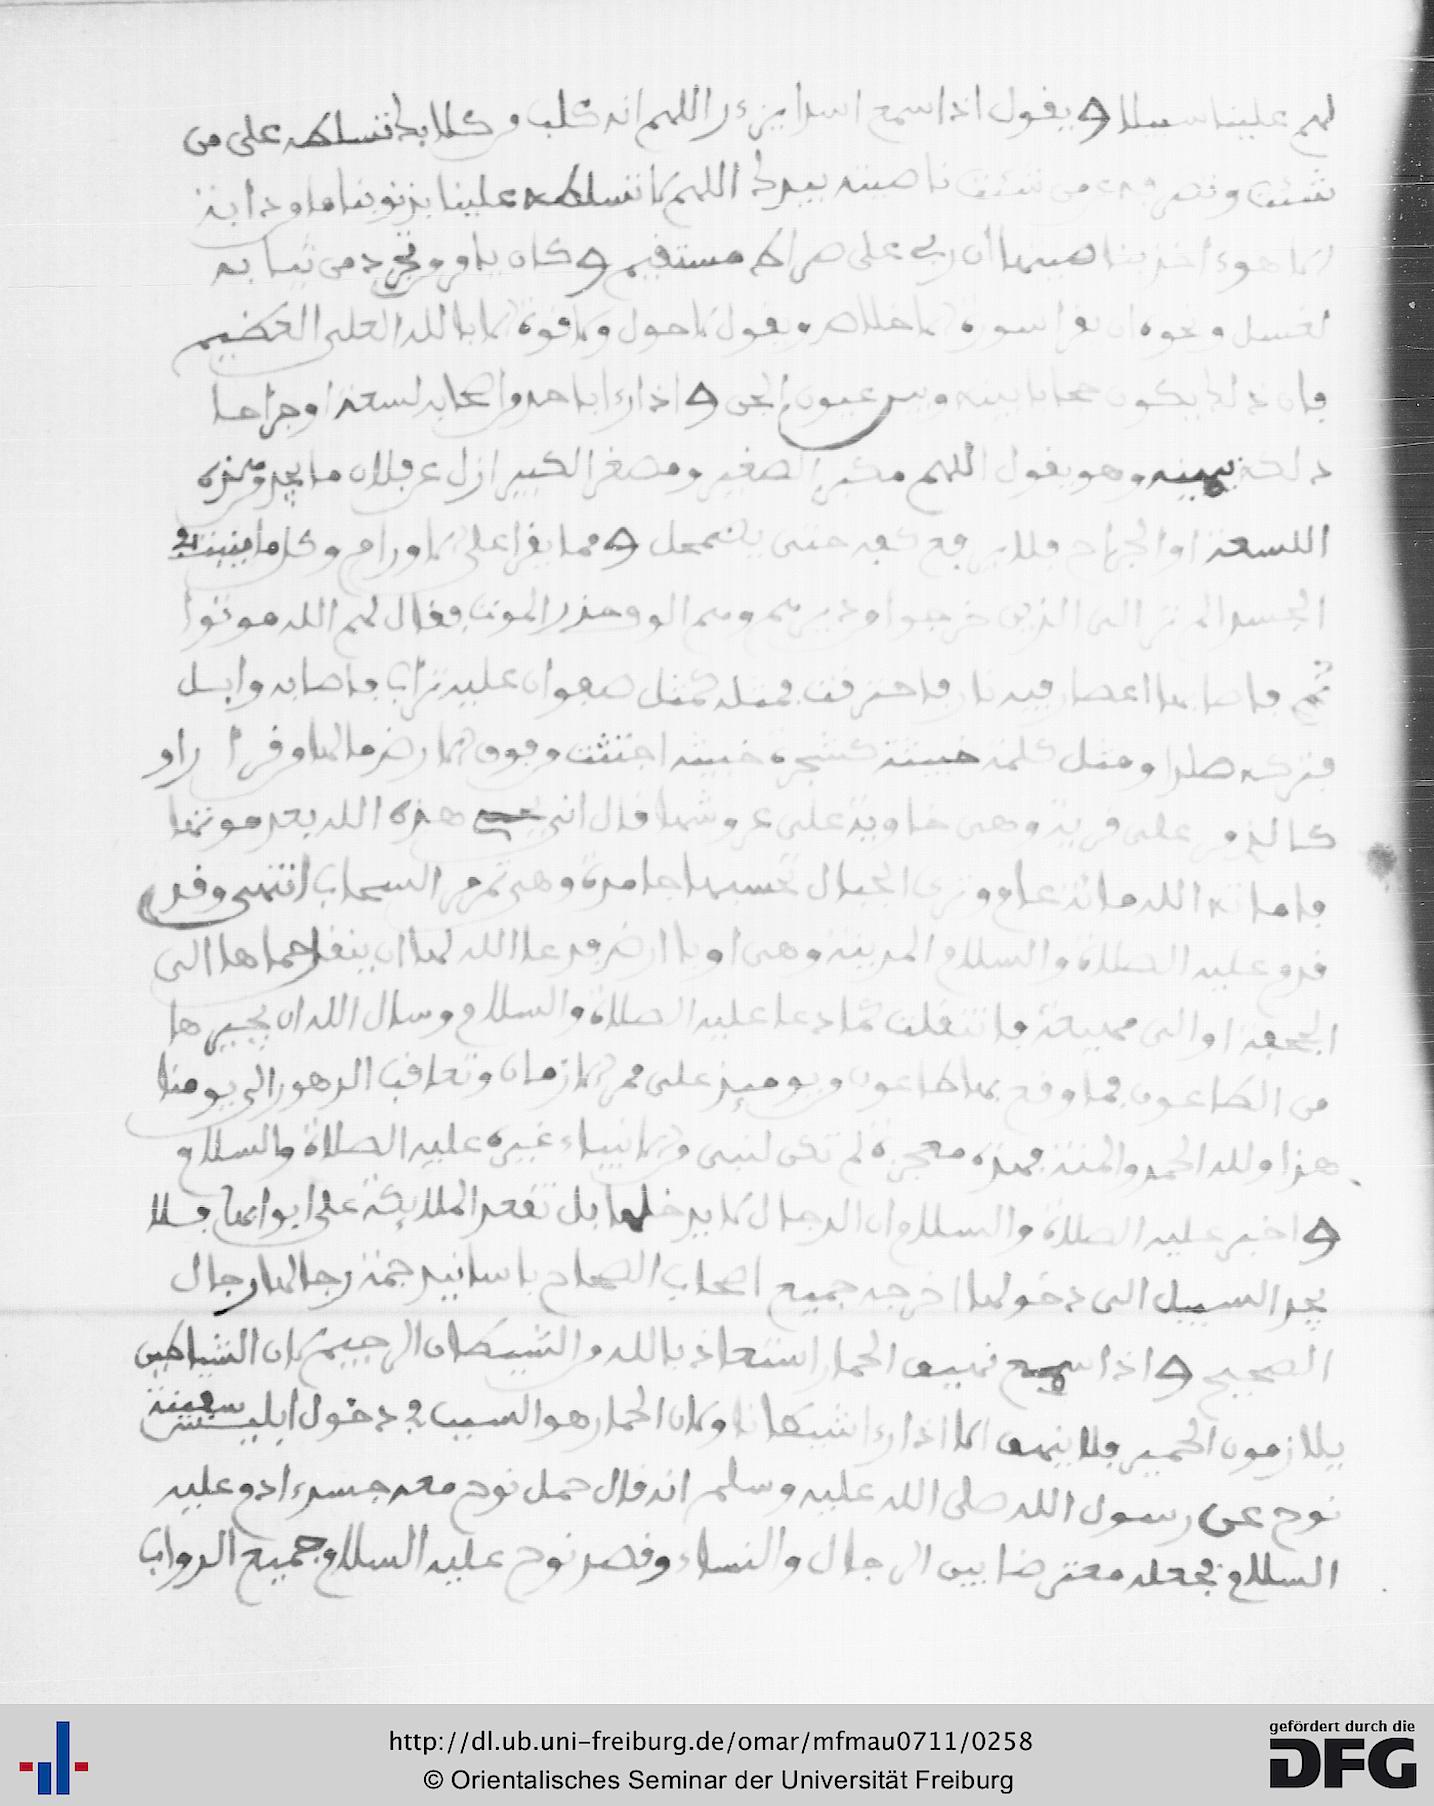 لهم علينا سبيلا ويقول اذا سمع اسدا يزءر اللهم انه كلب من كلابك تسلطه على من
شئت وتصرفه عمن شئت ناصيته بيدك اللهم لا تسلطه علينا بذنوبنا ما من دابة
الا هو ءاخذ بناصيتها ان ربي على صراط مستقيم وكان ياو وتجرد من ثيابه
لغسل ونحوه ان يقرا سورة الاخلاص ويقول لا حول ولا قوة الا بالله العلي العظيم
فان ذلك يكون حجابا بينه وبين عيون الجن واذا رءا باحد واصحابه لسعة او جراحا
دلكه بيمينه وهو يقول اللهم مكبر الصغير ومصغر الكبير ازل عن فلان ما يجد من هذه
اللسعة او الجراح فلا يرفع كفه حتى يضمحل ومما يقرا على الاورام وكل ما ينبت في
الجسد الم تر الى الذين خرجوا من ديرهم وهم الوف حذر الموت فقال لهم الله موتوا
ثم فاصابها اعصار فيه نار فاحترقت فمثله كمثل صفوان عليه تراب فاصابه وابل
فتركه صلدا ومثل كلمة خبيثة كشجرة خبيثة اجتثت من فوق الارض ما لها من قرار او
كالذي مر على قرية وهي خاوية على عروشها قال انى يحيي هذه الله بعد موتها
فاماته الله مائة عام وترى الجبال تحسبها جامدة وهي تمر مر السحاب انتهى وقد
قدم عليه الصلاة والسلام المدينة وهي اوبا ارض فدعا الله لها ان ينقل حماها الى
الجحفة او الى مهيعة فانتقلت كما دعا عليه الصلاة والسلام وسال الله ان يجيرها
من الطاعون فما وقع بها طاعون من يومئذ على ممر الازمان وتعاقب الدهور الى يومنا
هذا ولله الحمد والمنة فهذه معجزة لم تكن لنبي من الانبياء غيره عليه الصلاة والسلام
واخبر عليه الصلاة والسلام ان الدجال لا يدخلها بل تقعد الملايكة على ابوابها فلا
يجد السبيل الى دخولها اخرجه جميع اصحاب الصحاح باسانيد جمة رجالها رجال
الصحيح واذا سمع نهيق الحمار استعاذ بالله من الشيطان الرجيم لان الشياطين
يلازمون الحمير فلا ينهق الا اذا رءا شيطانا وكان الحمار هو السبب في دخول ابليس سفينة
نوح عن رسول الله صلى الله عليه وسلم انه قال حمل نوح معه جسد ءادم عليه
السلام فجعله معترضا بين الرجال والنساء وقصد نوح عليه السلام جميع الدواب
http://dl.ub.uni-freiburg.de/omar/mfmau0711/0258
© Orientalisches Seminar der Universität Freiburg
gefördert durch die
DFG